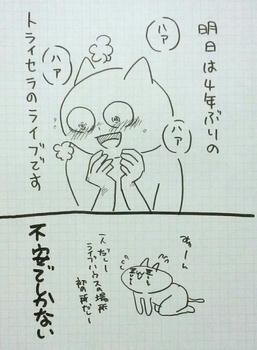 明日は4年ぶりの
トライセラのライブです
ハァ
ハァ
ハァ
ずーん
一人だしー
ライブハウスの場所
初の所だしー
不安でしかない